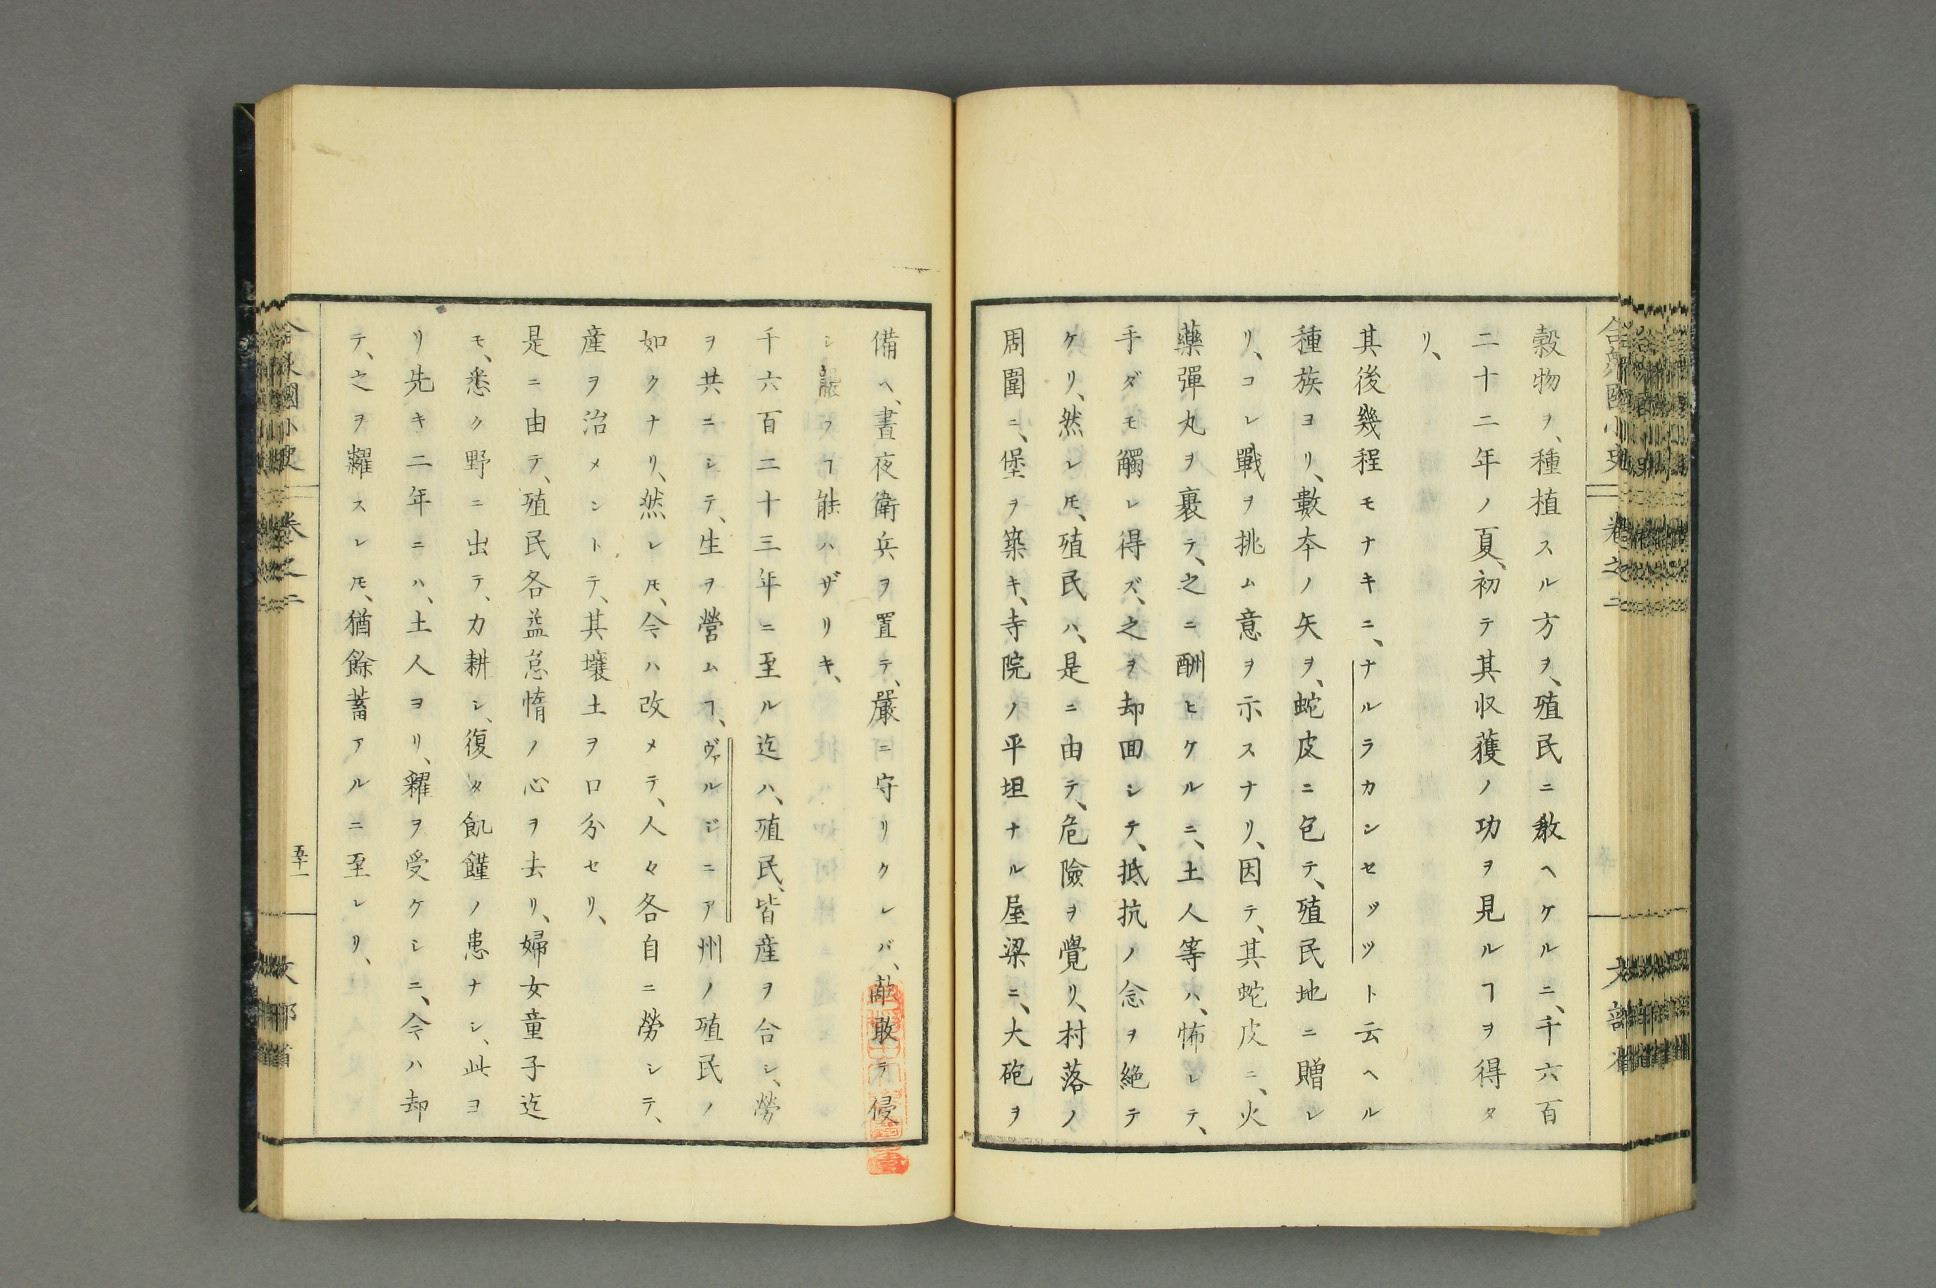 穀物ヲ、種植スル方ヲ、殖民ニ教ヘケルニ、千六百
二十二年ノ夏、初テ其収獲ノ功ヲ見ルヿヲ得タ
リ、
其後幾程モナキニ、ナルラカンセツツト云ヘル
種族ヨリ、數本ノ矢ヲ、蛇皮ニ包テ、殖民地ニ贈レ
リ、コレ戰ヲ挑ム意ヲ示スナリ、因テ、其蛇皮ニ、火
藥彈丸ヲ裹テ、之ニ酬ヒケルニ、土人等ハ、怖レテ、
手ダモ觸レ得ズ、之ヲ却回シテ、抵抗ノ念ヲ絶テ
ケリ、然レ𪜈、殖民ハ、是ニ由テ、危險ヲ覺リ、村落ノ
周圍ニ、堡ヲ築キ、寺院ノ平坦ナル屋梁ニ、大砲ヲ
合衆國小史 卷之二 文部省
備ヘ、晝夜衛兵ヲ置テ、嚴ニ守リクレバ、敵敢テ侵
シ襲フヿ能ハザリキ、
千六百二十三年ニ至ル迄ハ、殖民、皆産ヲ合シ、勞
ヲ共ニシテ、生ヲ營ムヿ、ヴァルジニア州ノ殖民ノ
如クナリ、然レ𪜈、今ハ改メテ、人々各自ニ勞シテ、
産ヲ治メントテ、其壤土ヲ口分セリ、
是ニ由テ、殖民各益怠惰ノ心ヲ去リ、婦女童子迄
モ、悉ク野ニ出テ、力耕シ、復タ飢饉ノ患ナシ、此ヨ
リ先キ二年ニハ、土人ヨリ、糴ヲ受ケシニ、今ハ却
テ、之ヲ糶スレ𪜈、猶餘蓄アルニ至レリ、
合衆國小史 卷之二 五十一 文部省